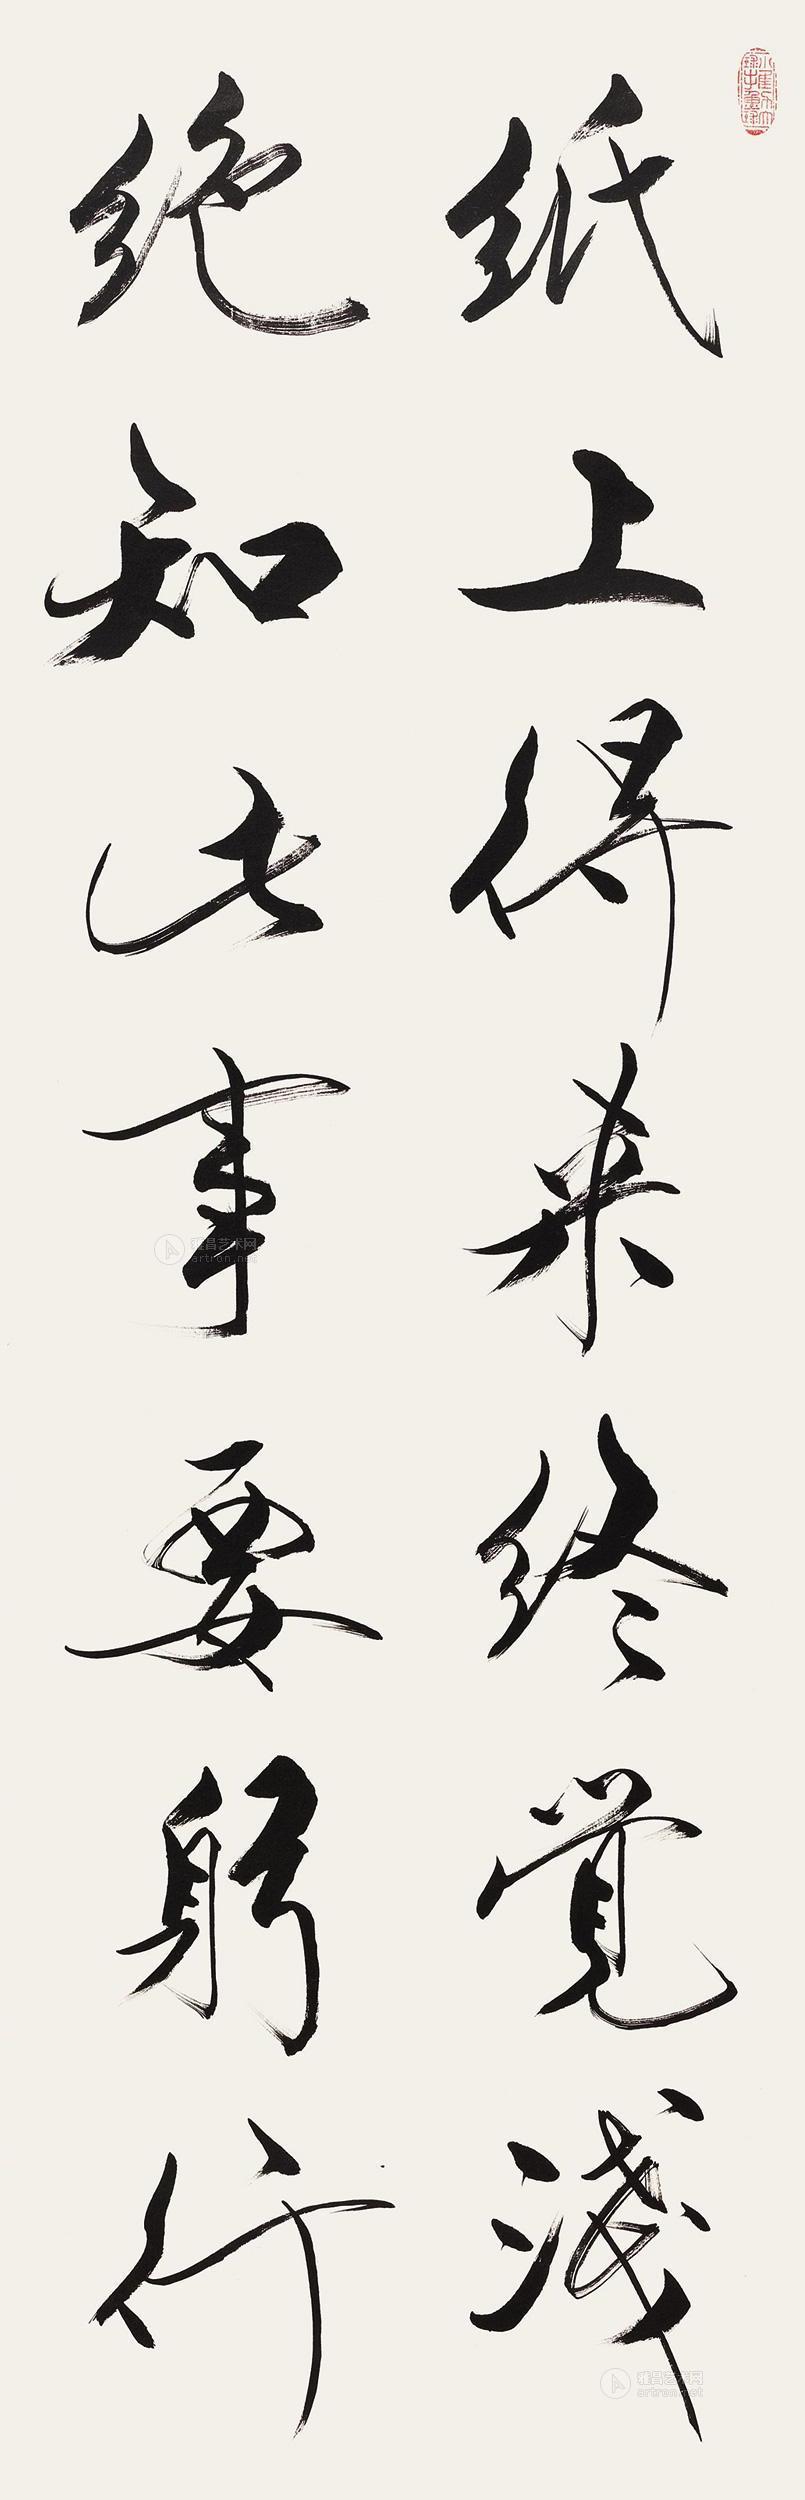 纸上得来终觉浅
绝知此事要躬行
雅昌艺术网
artron.net
雅昌艺术网
artron.net